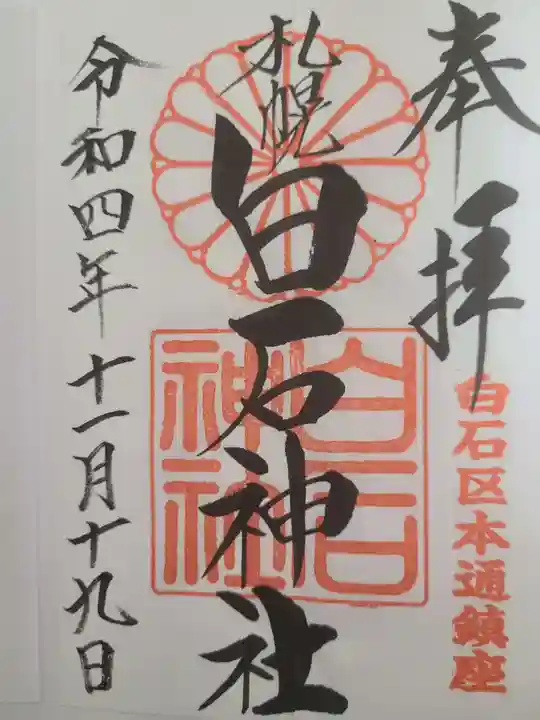 奉拝
白石区本通鎮座
札幌
白石神社
白石
神社
令和四年十一月十九日